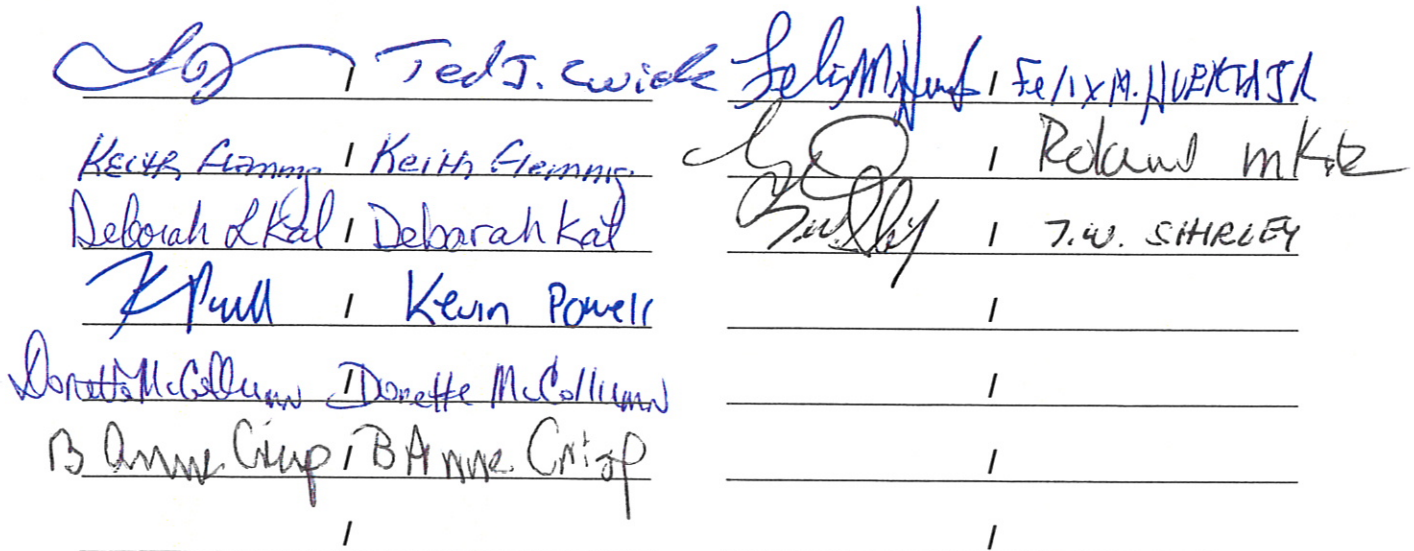 / Ted J. Cwiek
Keith Flemming / Keith Flemming
Deborah L Kal / Debarah Kal
/ Kevin Powell
Donette McCollumn / Donette McCollumn
B Anne Crisp / B Anne Crisp
/
/ Felix M. HUERTA JR
/ Roland m
/ T.W. SHIRLEY
/
/
/
/